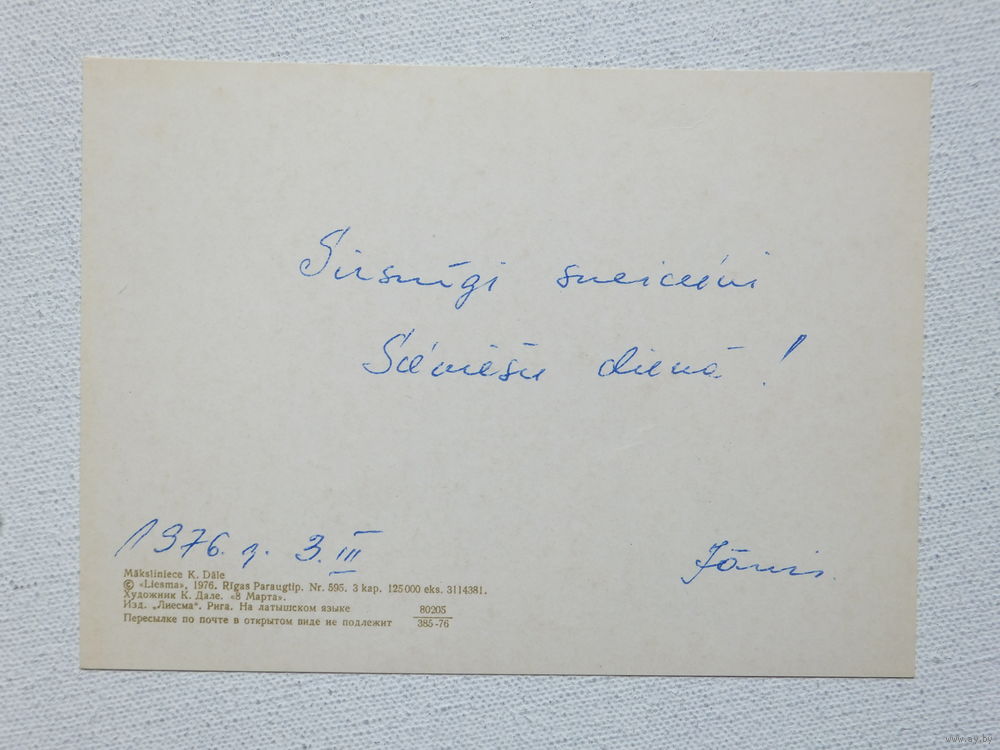 Sirsnīgi sveicieni
Sieviešu dienā!
1976. g. 3. III
Jānis.
Māksliniece K. Dāle
© «Liesma», 1976. Rīgas Paraugtip. Nr. 595. 3 kap. 125000 eks. 3114381.
Художник К. Дале. «8 Марта».
Изд. „Лиесма“. Рига. На латышском языке
Пересылке по почте в открытом виде не подлежит
80205
385-76
www.ay.by